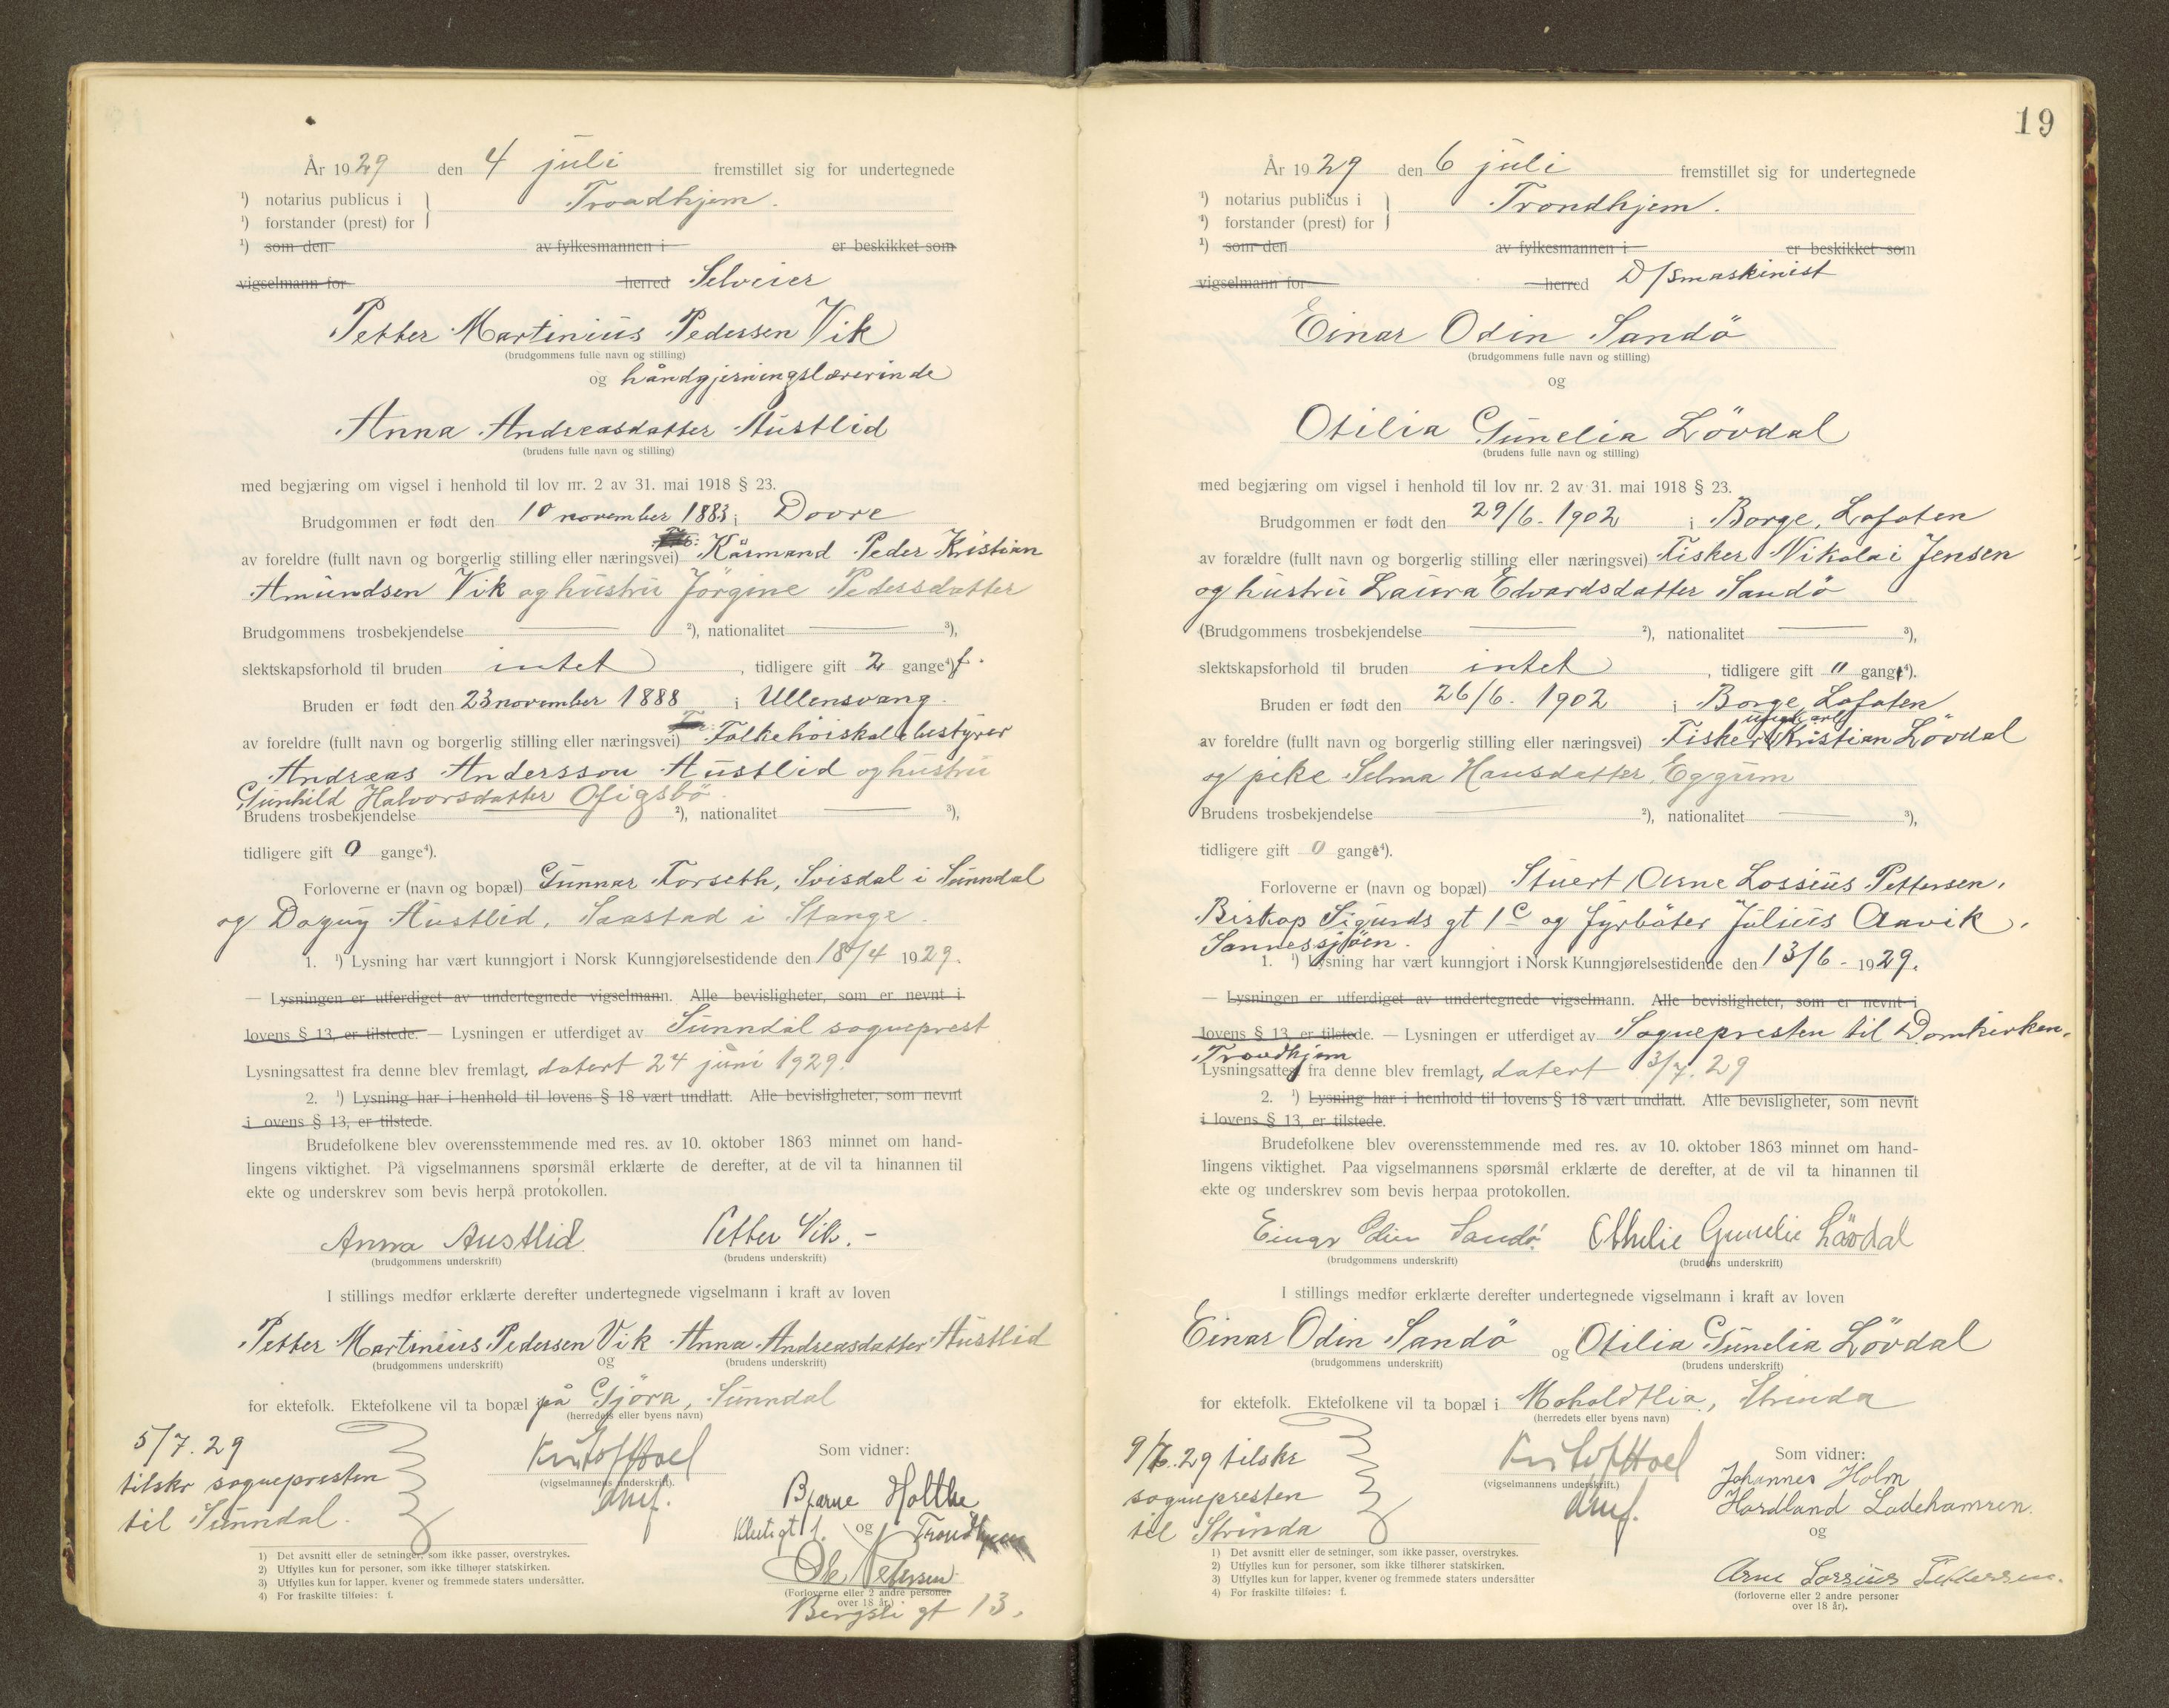 År 1929 den 4 juli fremstillet sig for undertegnede
¹) notarius publicus i } Trondhjem.
¹) forstander (prest) for
¹) som den av fylkesmannen i er beskikket som
vigselmann for herred Selveier
Petter Martinius Pedersen Vik
(brudgommens fulle navn og stilling)
og håndgjerningslærerinde
Anna Andreasdatter Austlid
(brudens fulle navn og stilling)
med begjæring om vigsel i henhold til lov nr. 2 av 31. mai 1918 § 23.
Brudgommen er født den 10 november 1883 i Dovre
av foreldre (fullt navn og borgerlig stilling eller næringsvei) Kårmand Peder Kristian
Amundsen Vik og hustru Jörgine Pedersdatter
Brudgommens trosbekjendelse ²), nationalitet ³),
slektskapsforhold til bruden intet, tidligere gift 2 gange⁴) f.
Bruden er født den 23 november 1888 i Ullensvang.
av foreldre (fullt navn og borgerlig stilling eller næringsvei) Folkehöiskolebestyrer
Andreas Anderssou Austlid og hustru
Gunhild Halvorsdatter Ofigsbö.
Brudens trosbekjendelse ²), nationalitet ³),
tidligere gift 0 gange⁴).
Forloverne er (navn og bopæl) Gunnar Forseth, Svisdal i Sunndal
og Dagny Austlid, Saastad i Stange.
1. ¹) Lysning har vært kunngjort i Norsk Kunngjørelsestidende den 18/4 1929.
— Lysningen er utferdiget av undertegnede vigselmann. Alle bevisligheter, som er nevnt i
lovens § 13, er tilstede. — Lysningen er utferdiget av Sunndal sogneprest
Lysningsattest fra denne blev fremlagt, datert 24 juni 1929.
2. ¹) Lysning har i henhold til lovens § 18 vært undlatt. Alle bevisligheter, som nevnt
i ovens § 13, er tilstede.
Brudefolkene blev overensstemmende med res. av 10. oktober 1863 minnet om hand-
lingens viktighet. På vigselmannens spørsmål erklærte de derefter, at de vil ta hinannen til
ekte og underskrev som bevis herpå protokollen.
Anna Austlid Petter Vik. -
(brudgommens underskrift) (brudens underskrift)
I stillings medfør erklærte derefter undertegnede vigselmann i kraft av loven
Petter Martinius Pedersen Vik Anna Andreasdatter Austlid
(brudgommens underskrift) og (brudens underskrift)
for ektefolk. Ektefolkene vil ta bopæl på Gjöra, Sunndal
(herredets eller byens navn)
5/7.29
tilskr sognepresten
til Sunndal.
Kristof Hoel
(vigselmannens underskrift).
Som vidner:
Bjarne Holthe
og Trondhjem
Ole Petersen
(Forloverne eller 2 andre personer
over 18 år.)
Bergsli gt 13.
1) Det avsnitt eller de setninger, som ikke passer, overstrykes.
2) Utfylles kun for personer, som ikke tilhører statskirken.
3) Utfylles kun for lapper, kvener og fremmede staters undersåtter.
4) For fraskilte tilføies: f.
19
År 1929 den 6 juli fremstillet sig for undertegnede
¹) notarius publicus i } Trondhjem.
¹) forstander (prest) for
¹) som den av fylkesmannen i er beskikket som
vigselmann for herred D/Smaskinist
Einar Odin Sandö
(brudgommens fulle navn og stilling)
og
Otilia Gunelia Lövdal
(brudens fulle navn og stilling)
med begjæring om vigsel i henhold til lov nr. 2 av 31. mai 1918 § 23.
Brudgommen er født den 29/6. 1902 i Borge, Lofoten
av forældre (fullt navn og borgerlig stilling eller næringsvei) Fisker Nikolai Jensen
og hustru Laura Edvardsdatter Sandö
(Brudgommens trosbekjendelse ²), nationalitet ³),
slektskapsforhold til bruden intet, tidligere gift 0 gange⁴).
Bruden er født den 26/6. 1902 i Borge, Lofoten
av foreldre (fullt navn og borgerlig stilling eller næringsvei) Fisker ungkarl Kristian Lövdal
og pike Selma Hansdatter Eggum
Brudens trosbekjendelse ²), nationalitet ³),
tidligere gift 0 gange⁴).
Forloverne er (navn og bopæl) Stuert Arne Lossius Pettersen,
Biskop Sigurds gt 1c og fyrböter Julius Aavik,
Sannessjöen.
1. ¹) Lysning har vært kunngjort i Norsk Kunngjørelsestidende den 13/6 - 1929.
— Lysningen er utferdiget av undertegnede vigselmann. Alle bevisligheter, som er nevnt i
lovens § 13, er tilstede. — Lysningen er utferdiget av Sognepresten til Domkirken,
Trondhjem
Lysningsattest fra denne blev fremlagt, datert 3/7.29
2. ¹) Lysning har i henhold til lovens § 18 vært undlatt. Alle bevisligheter, som nevnt
i lovens § 13, er tilstede.
Brudefolkene blev overensstemmende med res. av 10. oktober 1863 minnet om hand-
lingens viktighet. Paa vigselmannens spørsmål erklærte de derefter, at de vil ta hinannen til
ekte og underskrev som bevis herpaa protokollen.
Einar Odin Sandö. Othelie Gunelie Lövdal
(brudgommens underskrift) (brudens underskrift)
I stillings medfør erklærte derefter undertegnede vigselmann i kraft av loven
Einar Odin Sandö og Otilia Gunelia Lövdal
(brudgommens underskrift) (brudens underskrift)
for ektefolk. Ektefolkene vil ta bopæl i Moholdtlia, Strinda
(herredets eller byens navn)
9/7.29 tilskr
sognepresten
til Strinda
Kristof Hoel
(vigselmannens underskrift.)
Som vidner:
Johannes Holm
Hordland Ladehamren.
og
Arne Lossius Pettersen.
(forloverne eller 2 andre personer
over 18 år).
1) Det avsnitt eller de setninger, som ikke passer, overstrykes.
2) Utfylles kun for personer, som ikke tilhører statskirken.
3) Utfylles kun for lapper, kvener og fremmede staters undersåtter
4) For fraskilte tilføies: f.